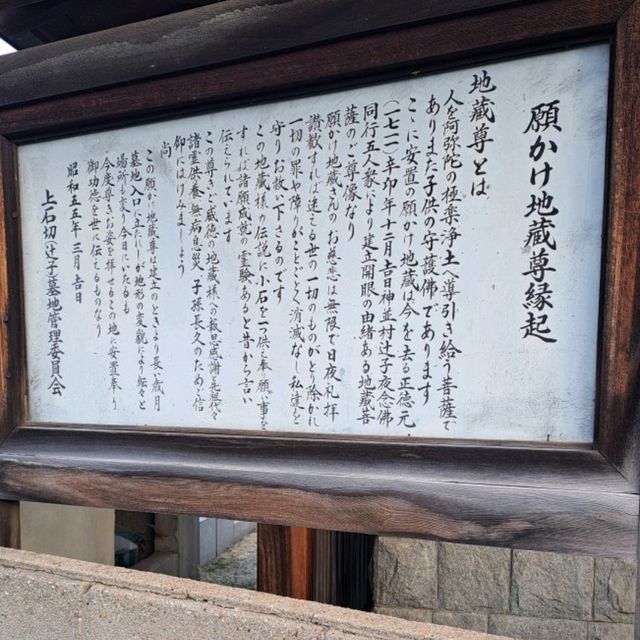 願かけ地蔵尊縁起
地蔵尊とは
人を阿弥陀の極楽浄土へ導引き給う菩薩で
ありまた子供の守護佛であります
ここに安置の願かけ地蔵は今を去る正徳元
(一七一一)辛卯年十二月吉日神並村辻子夜念佛
同行五人衆により建立開眼の由緒ある地蔵菩
薩のご尊像なり
願かけ地蔵さんのお慈悲は無限で日夜礼拝
讃歎すれば速に今世の一切のものがとり除かれ
一切の罪や障りがことごとく消滅なし私達を
守りお救い下さるのです
この地蔵様の伝説に小石を一つ供え奉願い事を
すれば諸願成就の霊験あると昔から言い
伝えられています
この尊きご威徳の地蔵様への報恩感謝と無縁
諸霊供養無病息災子孫長久のためご信
仰にはげみましょう
尚
この願かけ地蔵尊は建立のときより長い歳月
墓地入口に立れしが地形の変貌により転々と
場所も変り今日にいたるも
今度尊きお姿を拝せるこの地に安置奉り
御功徳を世に伝えるものなり
昭和五五年三月吉日
上石切(辻子)墓地管理委員会